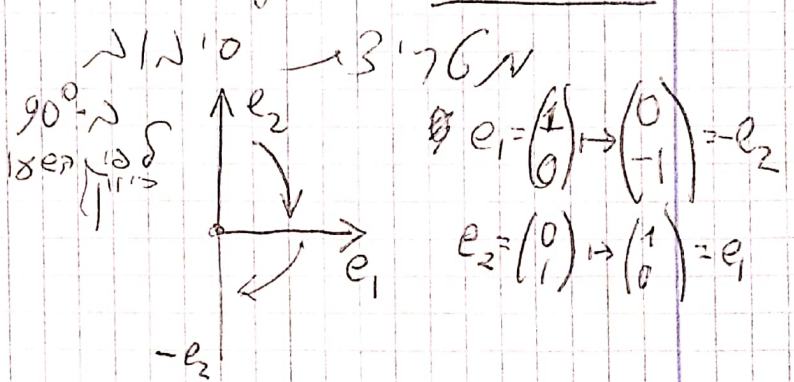 מטריצת סיבוב
ב-90°
לפי כיוון השעון
e₂
e₁
-e₂
e₁ = (1 0) ↦ (0 -1) = -e₂
e₂ = (0 1) ↦ (1 0) = e₁